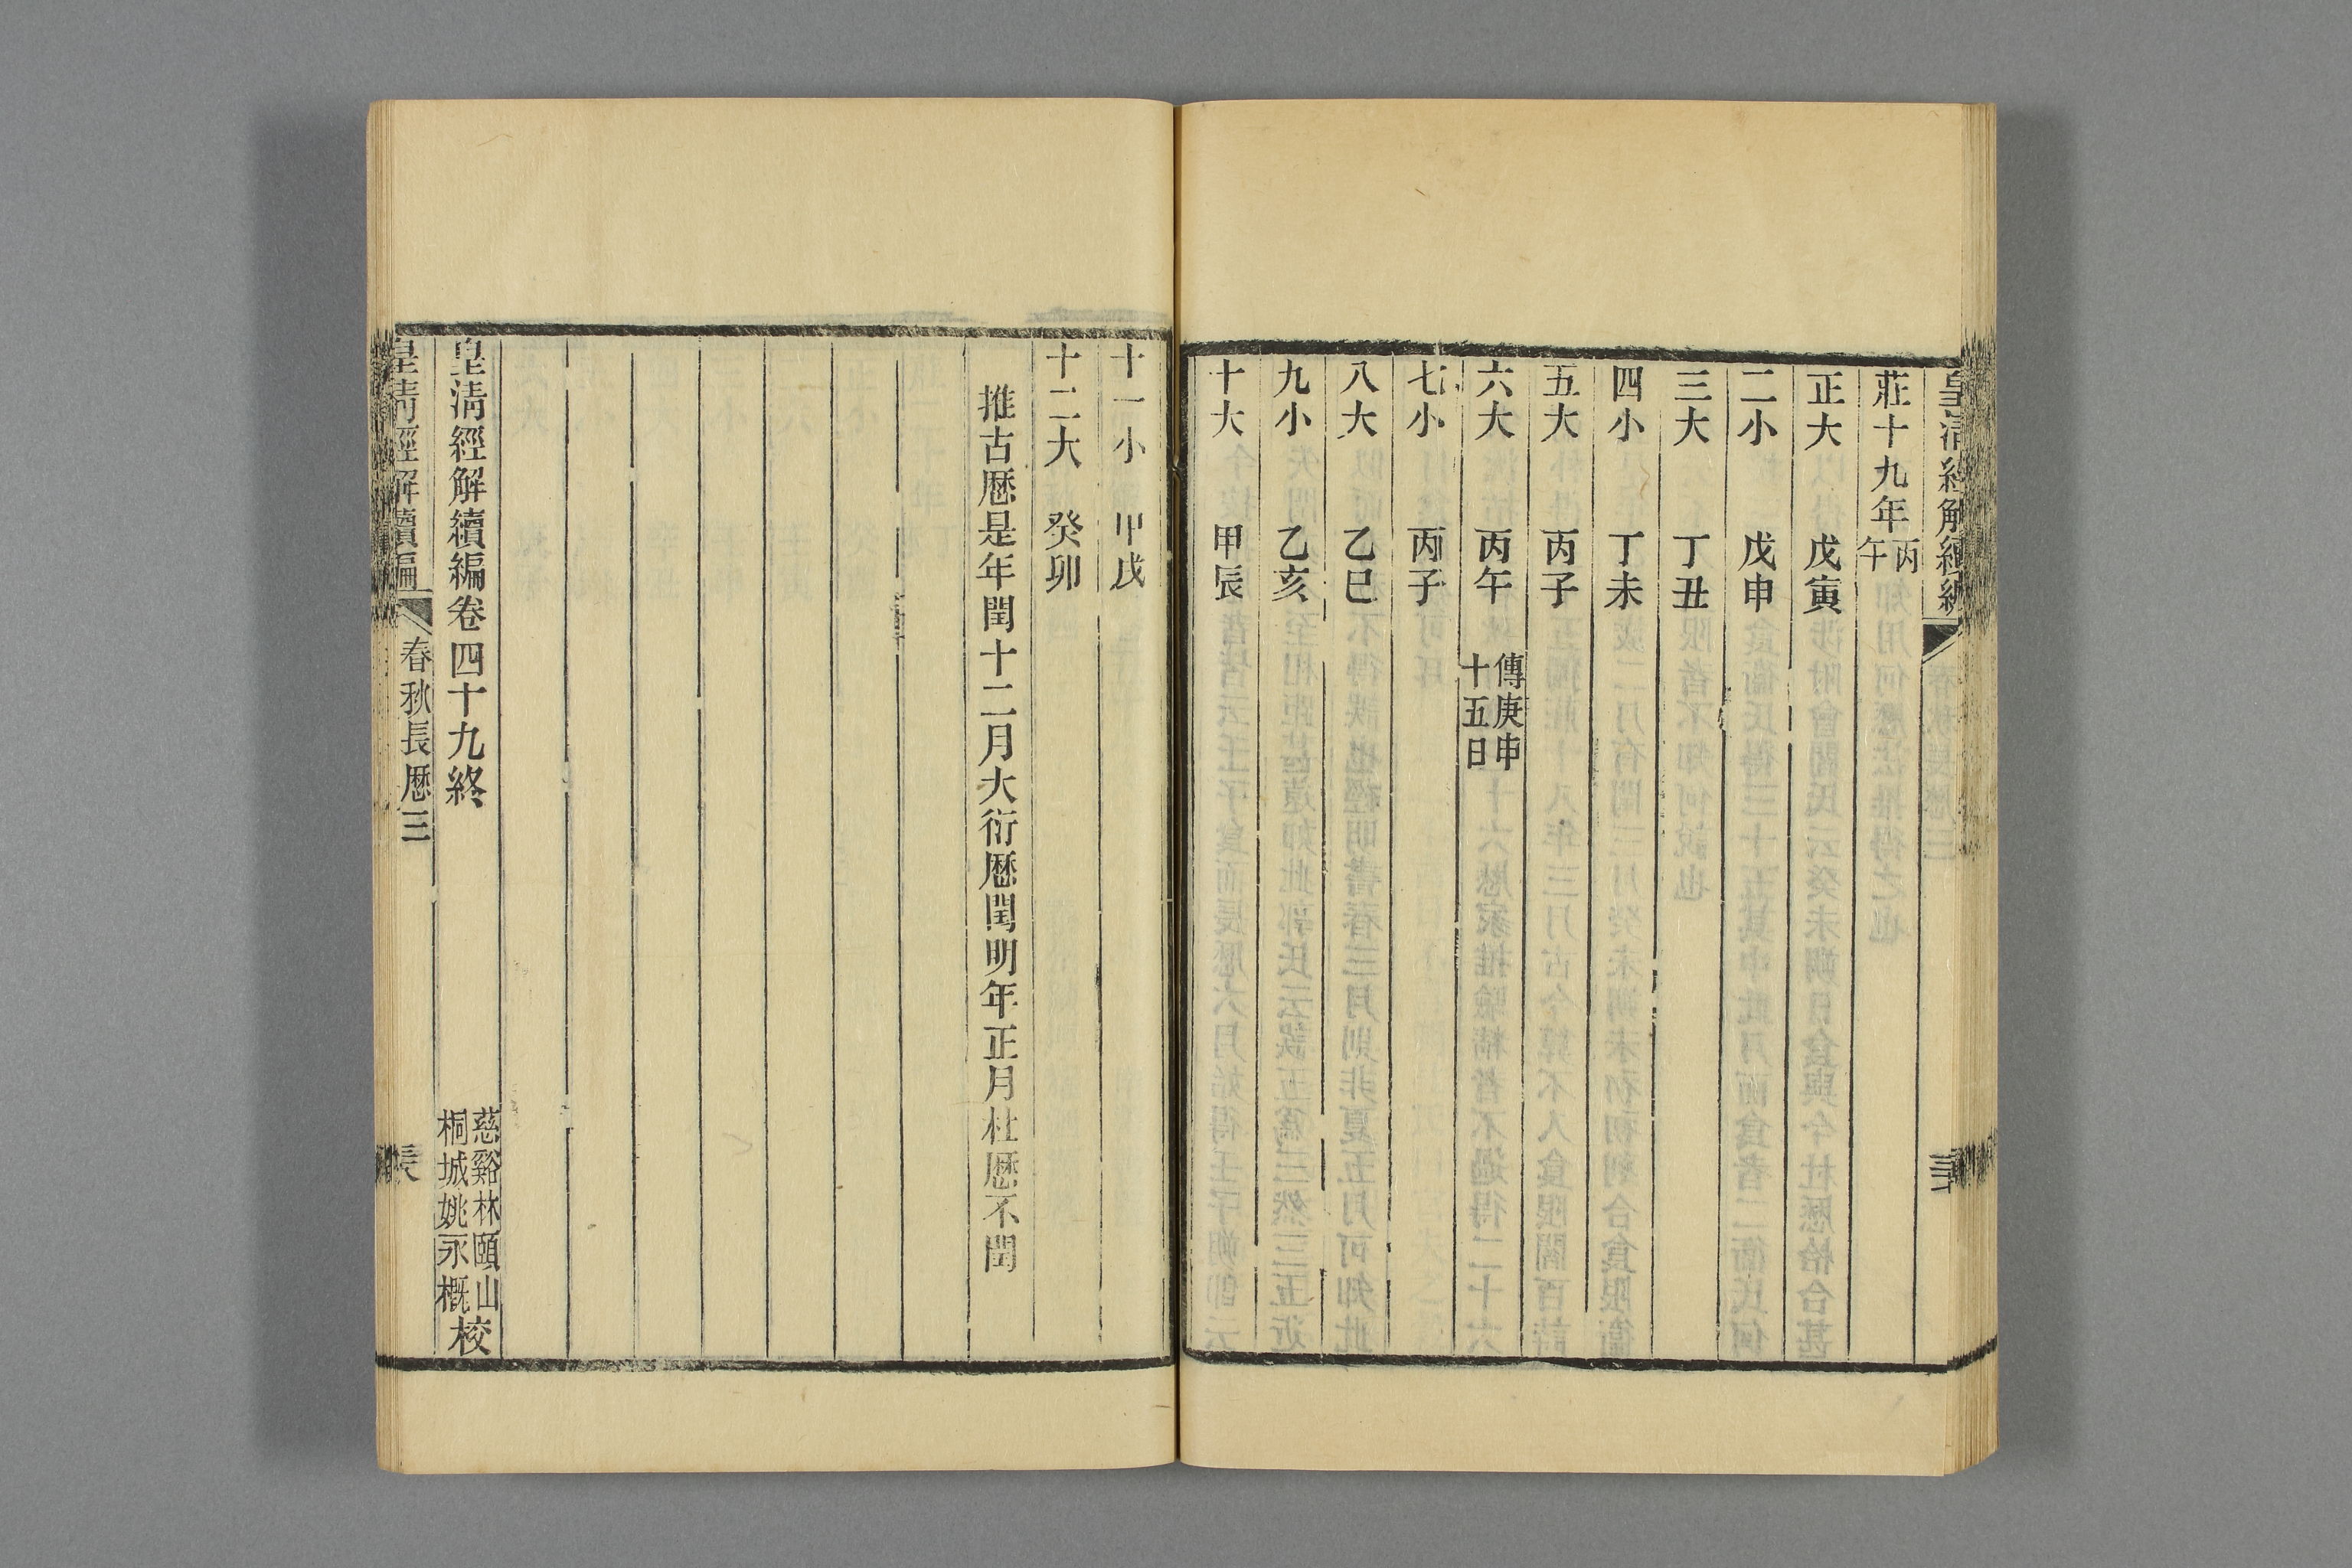 皇清經解續編
莊十九年丙午
正大　戊寅
二小　戊申
三大　丁丑
四小　丁未
五大　丙子
六大　丙午　傳庚申十五日
七小　丙子
八大　乙巳
九小　乙亥
十大　甲辰
十一小　甲戌
十二大　癸卯
推古厯是年閏十二月大衍厯閏明年正月杜厯不閏
皇清經解續編卷四十九終
慈谿林頤山
桐城姚永概校
皇清經解續編　春秋長厯三